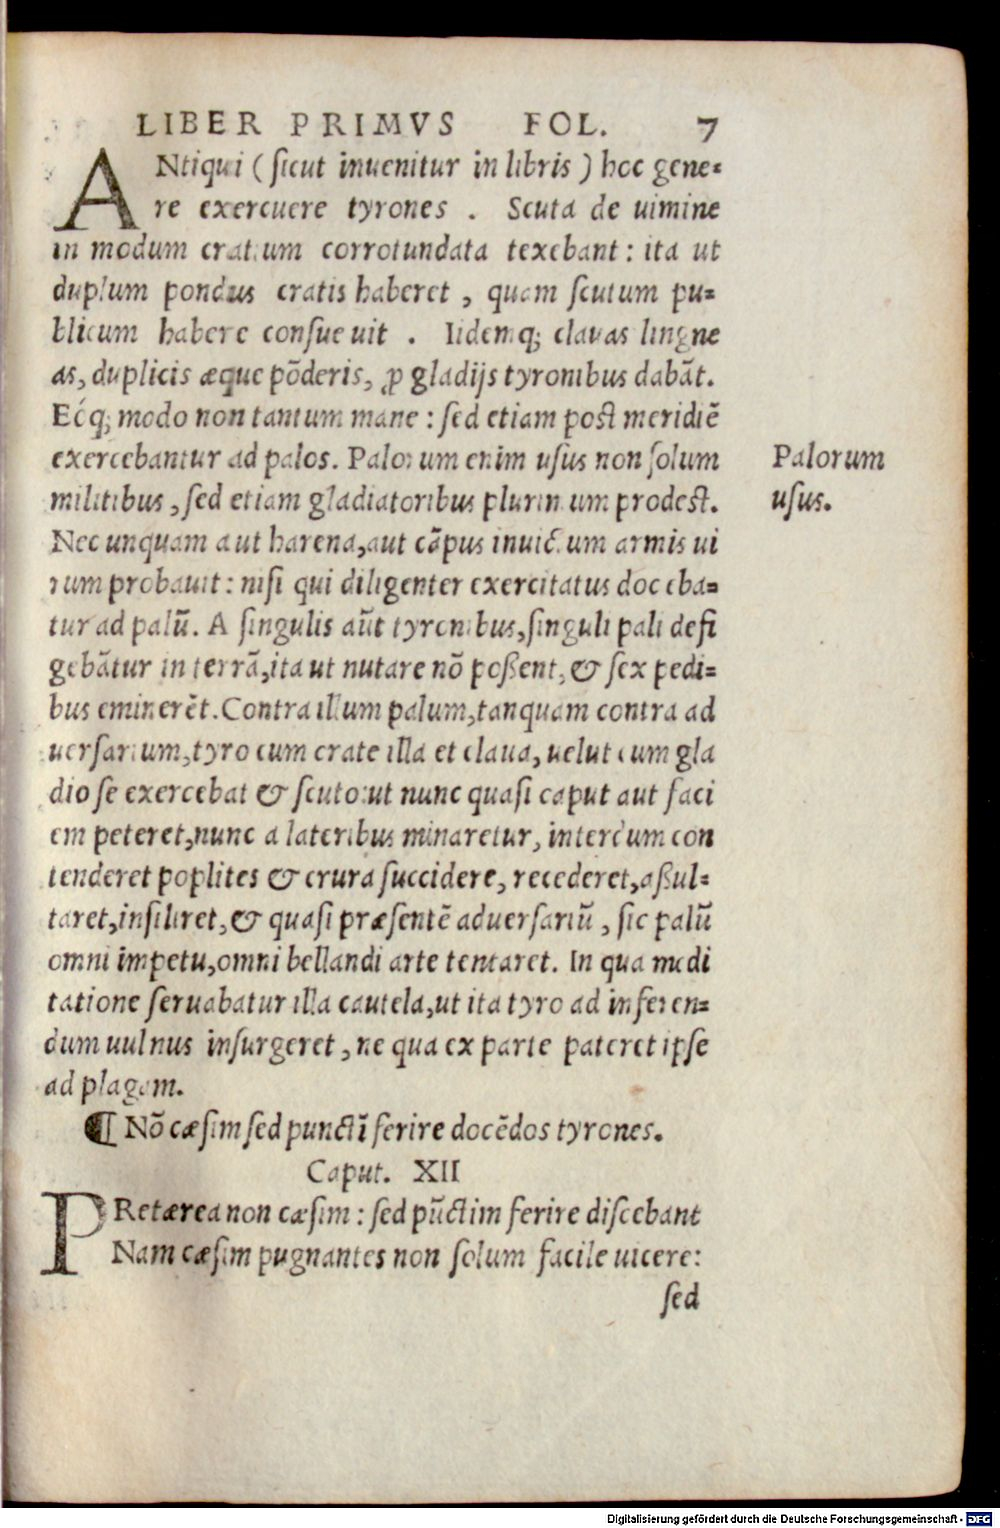 LIBER PRIMVS FOL. 7
ANtiqui (ſicut inuenitur in libris) hoc gene=
re exercuere tyrones . Scuta de uimine
in modum cratium corrotundata texebant: ita ut
duplum pondus cratis haberet , quam ſcutum pu=
blicum habere conſueuit . Iidemq; clauas lingne
as, duplicis æque põderis, ꝓ gladijs tyronibus dabãt.
Eóq; modo non tantum mane: ſed etiam poſt meridiẽ
exercebantur ad palos. Palorum enim uſus non ſolum
militibus, ſed etiam gladiatoribus plurimum prodeſt.
Nec unquam aut harena, aut cãpus inuictum armis ui
rum probauit: niſi qui diligenter exercitatus doceba=
tur ad palũ. A ſingulis aũt tyronibus, ſinguli pali defi
gebãtur in terrã, ita ut nutare nõ poßent, & ſex pedi=
bus eminerẽt. Contra illum palum, tanquam contra ad
uerſarium, tyro cum crate illa et claua, uelut cum gla
dio ſe exercebat & ſcuto: ut nunc quaſi caput aut faci
em peteret, nunc a lateribus minaretur, interdum con
tenderet poplites & crura ſuccidere, recederet, aßul=
taret, inſiliret, & quaſi præſentẽ aduerſariũ, ſic palũ
omni impetu, omni bellandi arte tentaret. In qua medi
tatione ſeruabatur illa cautela, ut ita tyro ad inferen=
dum uulnus inſurgeret, ne qua ex parte pateret ipſe
ad plagam.
Palorum
uſus.
¶ Nõ cæſim ſed punctĩ ferire docẽdos tyrones.
Caput. XII
PRetærea non cæſim: ſed pũctim ferire diſcebant
Nam cæſim pugnantes non ſolum facile uicere:
ſed
Digitalisierung gefördert durch die Deutsche Forschungsgemeinschaft - DFG